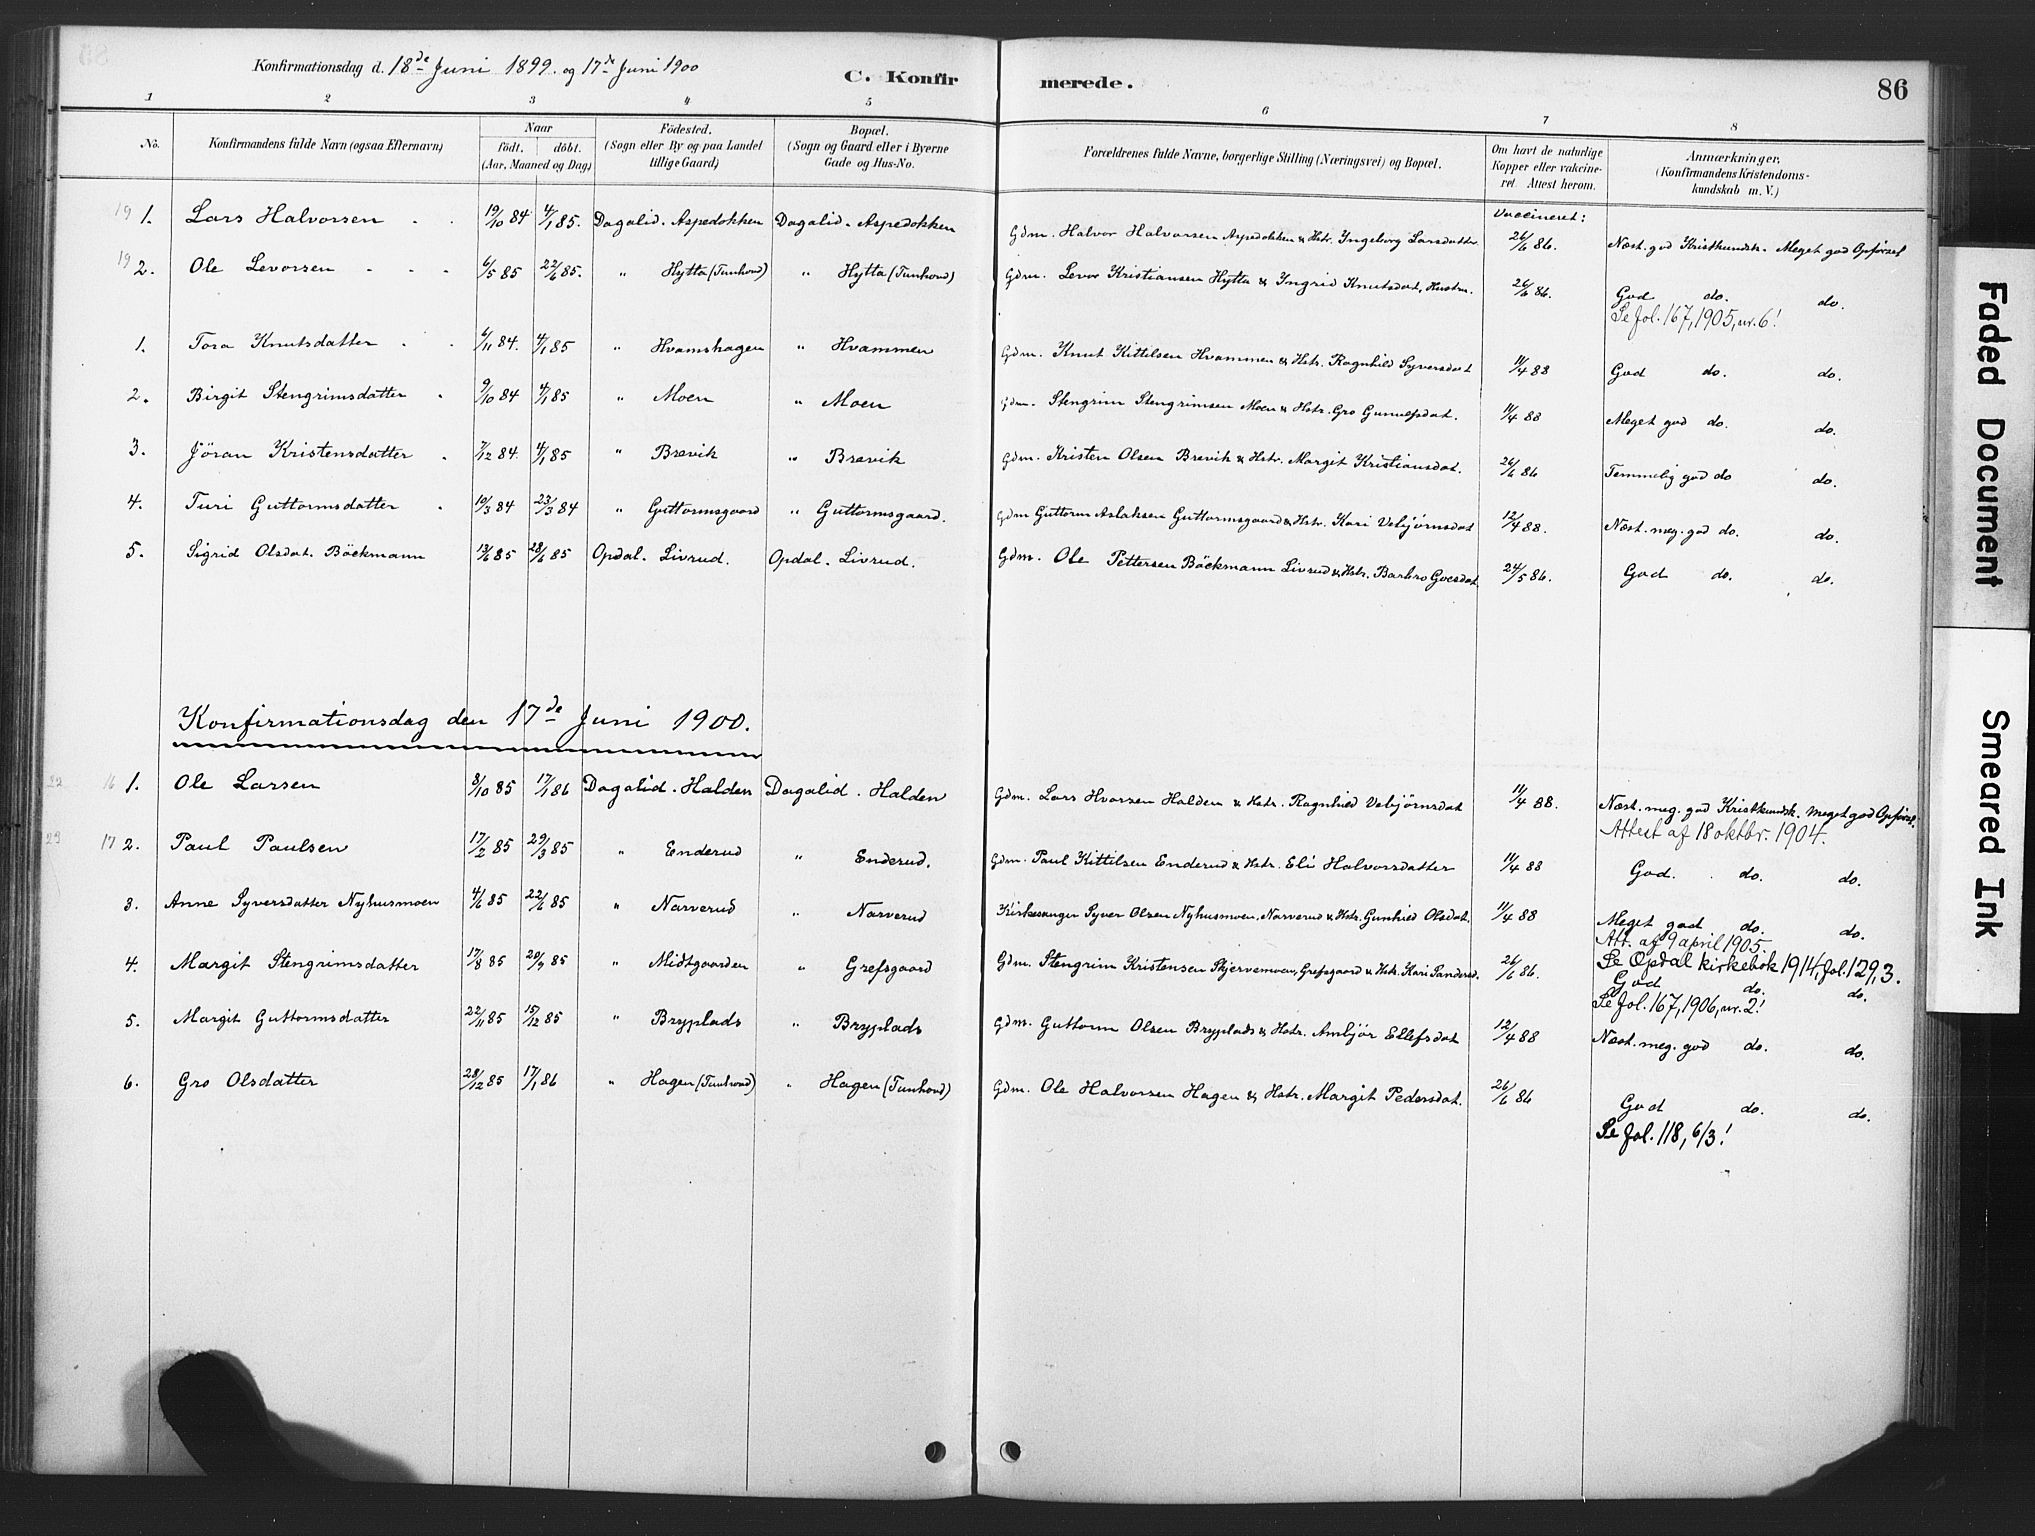 Konfirmationsdag d. 18de Juni 1899. og 17de Juni 1900
C. Konfirmerede.
86
1 2 3 4 5 6 7 8
No.
Konfirmandens fulde Navn (ogsaa Efternavn)
Naar
födt. döbt.
(Aar, Maaned og Dag)
Födested.
(Sogn eller By og paa Landet tillige Gaard)
Bopæl.
(Sogn og Gaard eller i Byerne Gade og Hus-No.
Forældrenes fulde Navne, borgerlige Stilling (Næringsvei) og Bopæl.
Om havt de naturlige Kopper eller vakcineret. Attest herom.
Anmærkninger,
(Konfirmandens Kristendomskundskab m. V.)
Vaccineret:
19 1. Lars Halvorsen 19/10 84 4/1 85. Dagalid. Aspedokken Dagalid. Aspedokken Gdm. Halvor Halvorsen Aspedokken & Hstr. Ingeborg Larsdatter 26/6 86. Næst. god Kristkundsk. Meget god Opförsel
19 2. Ole Levorsen 6/5 85 22/6 85. " Hytta (Tunhovd) " Hytta (Tunhovd) Gdm. Levor Kristiansen Hytta & Ingrid Knutsdat, Hustru. 26/6 86. God do. do.
Se fol. 167, 1905, nr. 6!
1. Tora Knutsdatter 6/11 84. 4/1 85 " Hvamshagen " Hvammen Gdm. Knut Kittilsen Hvammen & Hstr. Ragnhild Syversdat 11/4 88 God do. do.
2. Birgit Stengrimsdatter 9/10 84 4/1 85 " Moen " Moen Gdm. Stengrim Stengrimsen Moen & Hstr. Gro Gunulfsdat. 11/4 88 Meget god do. do.
3. Jöran Kristensdatter 7/12 84. 4/1 85 " Brevik " Brevik Gdm. Kristen Olsen Brevik & Hstr. Margit Kristiansdat. 26/6 86 Temmelig god do do.
4. Turi Guttormsdatter 19/3 84 23/3 84 " Guttormsgaard " Guttormsgaard. Gdm Guttorm Aslaksen Guttormsgaard & Hstr. Kari Vebjørnsdat 12/4 88. Næst. meg. god do. do.
5. Sigrid Olsdat. Böckmann 13/6 85 28/6 85 Opdal. Livrud. Opdal. Livrud. Gdm. Ole Pettersen Böckmann Livrud & Hstr. Barbro Goesdat 24/5 86. God do. do.
Konfirmationsdag den 17de Juni 1900.
22 16 1. Ole Larsen 8/10 85 17/1 86 Dagalid. Halden Dagalid. Halden Gdm. Lars Hvarsen Halden & Hstr. Ragnhild Vebjörnsdat 11/4 88. Næst. meg. god Kristkundsk. Meget god Opförsel.
Attest af 18 oktbr. 1904.
23 17 2. Paul Paulsen 17/2 85 29/3 85 " Enderud " Enderud. Gdm. Paul Kittilsen Enderud & Hstr. Eli Halvorsdatter 11/4 88 God. do. do.
3. Anne Syversdatter Nyhusmoen 4/6 85 22/6 85 " Narverud " Narverud Kirkesanger Syver Olsen Nyhusmoen, Narverud & Hstr. Gunhild Olsdat. 11/4 88 Meget god do. do.
Att. af 9 april 1905.
Se Opdal kirkebok 1914, fol. 129, 3.
4. Margit Stengrimsdatter 17/8 85 20/9 85 " Midtgaarden " Grefsgaard Gdm. Stengrim Kristensen Skjervemoen, Grefsgaard & Hstr. Kari Sandersd. 26/6 86. God do. do.
Se fol. 167, 1906, nr. 2!
5. Margit Guttormsdatter 22/11 85 15/12 85 " Bryplads " Bryplads Gdm. Guttorm Olsen Bryplads & Hstr. Ambjör Ellefsdat 12/4 88 Næst. meg. god do. do.
6. Gro Olsdatter 28/12 85 17/1 86 " Hagen (Tunhovd) " Hagen (Tunhovd) Gdm. Ole Halvorsen Hagen & Hstr. Margit Pedersdat. 26/6 86 God do. do.
Se fol. 118, 6/3!
Faded Document
Smeared Ink